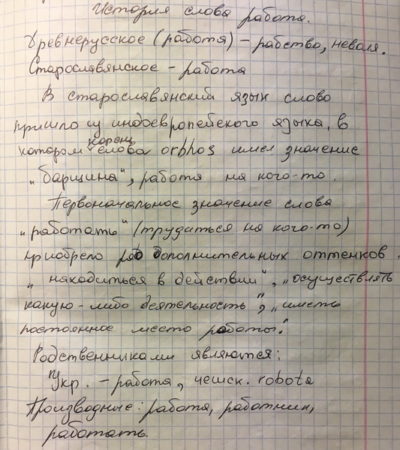 История слова работа.
Древнерусское (работа) – рабство, неволя.
Старославянское – работа
В старославянский язык слово
пришло из индоевропейского языка, в
котором корень слова orbhos имел значение
„барщина", работа на кого-то.
Первоначальное значение слова
„работать" (трудиться на кого-то)
приобрело ряд дополнительных оттенков
„находиться в действии", „осуществлять
какую-либо деятельность", „иметь
постоянное место работы".
Родственниками являются:
Укр. – работа, чешск. robota
Производные: работа, работник,
работать.